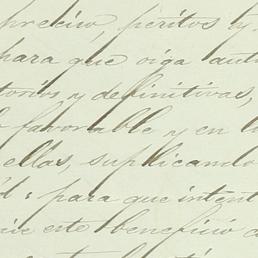 preciso, peritos y
para que oiga aut
torios y definitivas,
favorable y en lo
ellas, suplicando
para que intent
este beneficio